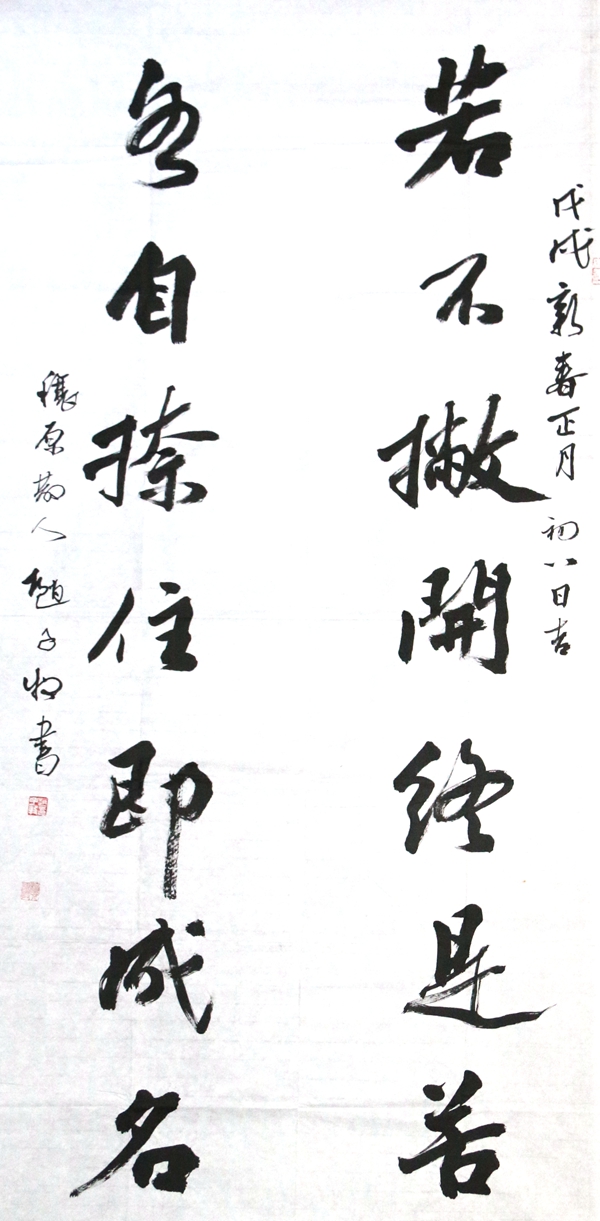 戊戌新春正月初八日吉
若不撇開終是苦
各自捺住即成名
原散人趙子 書